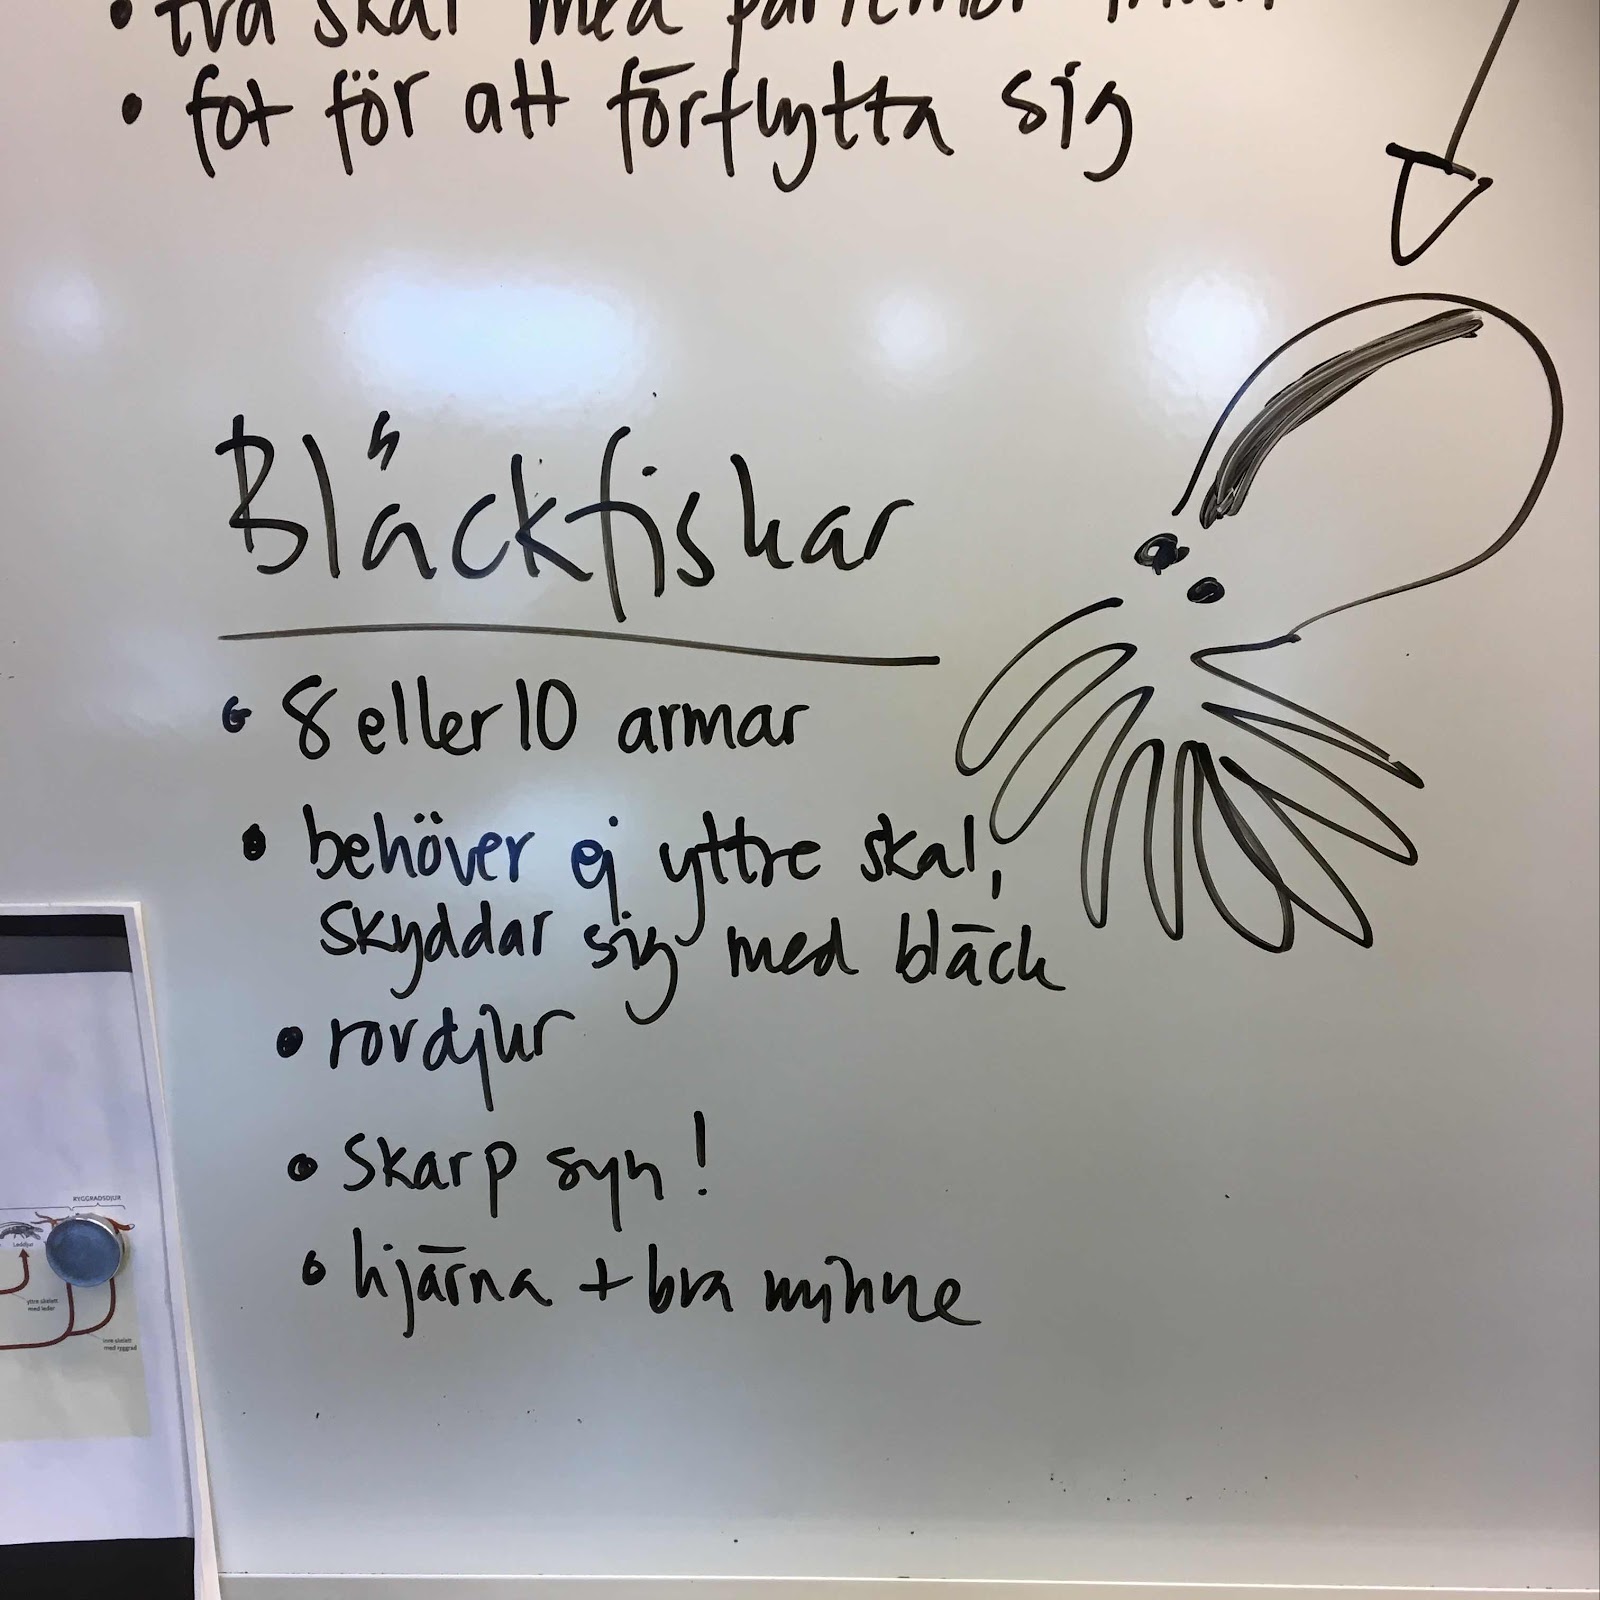 • två skal med pärlemor
• fot för att förflytta sig
Bläckfiskar
• 8 eller 10 armar
• behöver ej yttre skal,
skyddar sig med bläck
• rovdjur
• skarp syn!
• hjärna + bra minne
RYGGRADSDJUR
Leddjur
yttre skelett
med leder
inre skelett
med ryggrad